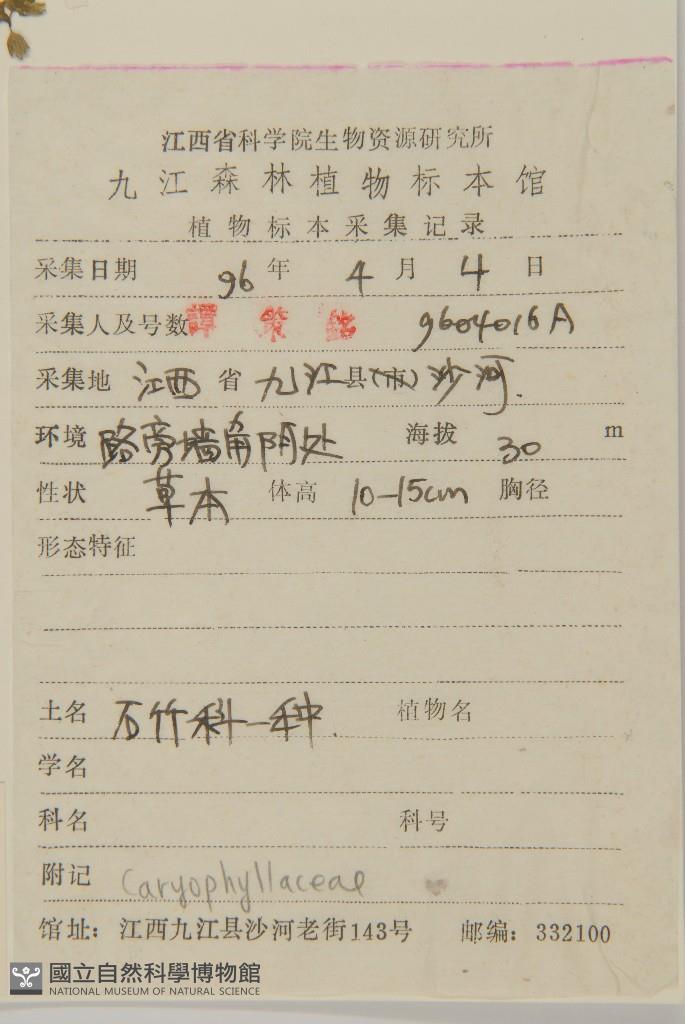 江西省科学院生物资源研究所
九江森林植物标本馆
植物标本采集记录
采集日期 96 年 4 月 4 日
采集人及号数 譚策銘 9604016A
采集地 江西 省 九江 县(市) 沙河.
环境 路旁墙角阴处 海拔 30 m
性状 草本 体高 10-15cm 胸径
形态特征
土名 石竹科一种. 植物名
学名
科名 科号
附记 Caryophyllaceae
馆址：江西九江县沙河老街143号 邮编：332100
國立自然科學博物館
NATIONAL MUSEUM OF NATURAL SCIENCE